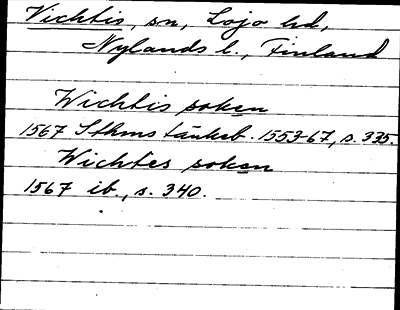 Vichtis, sn, Lojo hd,
Nylands l., Finland
Wichtis soken
1567 Sthms tänkeb. 1553-67, s. 335.
Wichtes soken
1567 ib., s. 340.